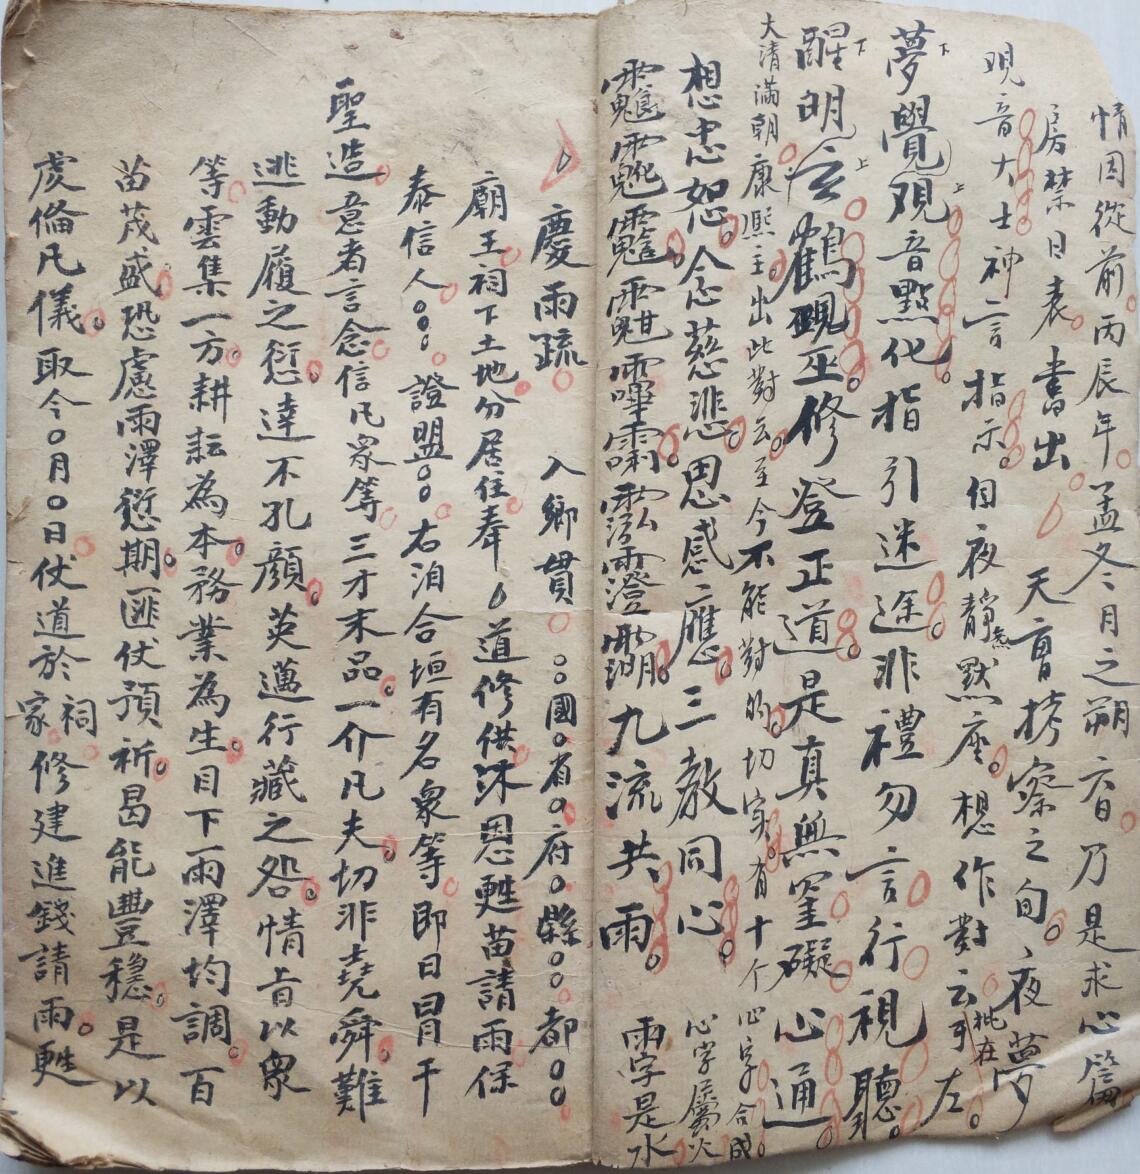 情因從前丙辰年孟冬月之朔六日乃是求心篇
房禁日表書出 天曹楼察之旬夜夢
观音大士神言指示自夜静默座想作對云批在左
夢覺观音點化指引迷途非禮勿言行視聽
醒明玄鶴硯巫修登正道是真無窒礙心通
大清滿朝康熙主出此對云至今不能對的切寔有十个心字合成
想忠恕念慈悲思感應三教同心 心字屬火
九流共雨 雨字是水
慶雨疏 入鄉貫○○○國○省○府○縣○○都○○
廟王祠下土地分居住奉道修供沐恩甦苗請雨保
泰信人○○證盟○○右洎合垣有名衆等即日冒干
聖造意者言念信凡衆等三才末品一介凡夫切非堯舜難
逃動履之愆達不孔顏英邁行藏之咎情旨以衆
等雲集一方耕耘為本務業為生目下雨澤均調百
苗茂盛恐慮雨澤愆期匪伏預祈曷能豐穩是以
虔倫凡儀取今○月○日仗道於祠家修建進錢請雨甦